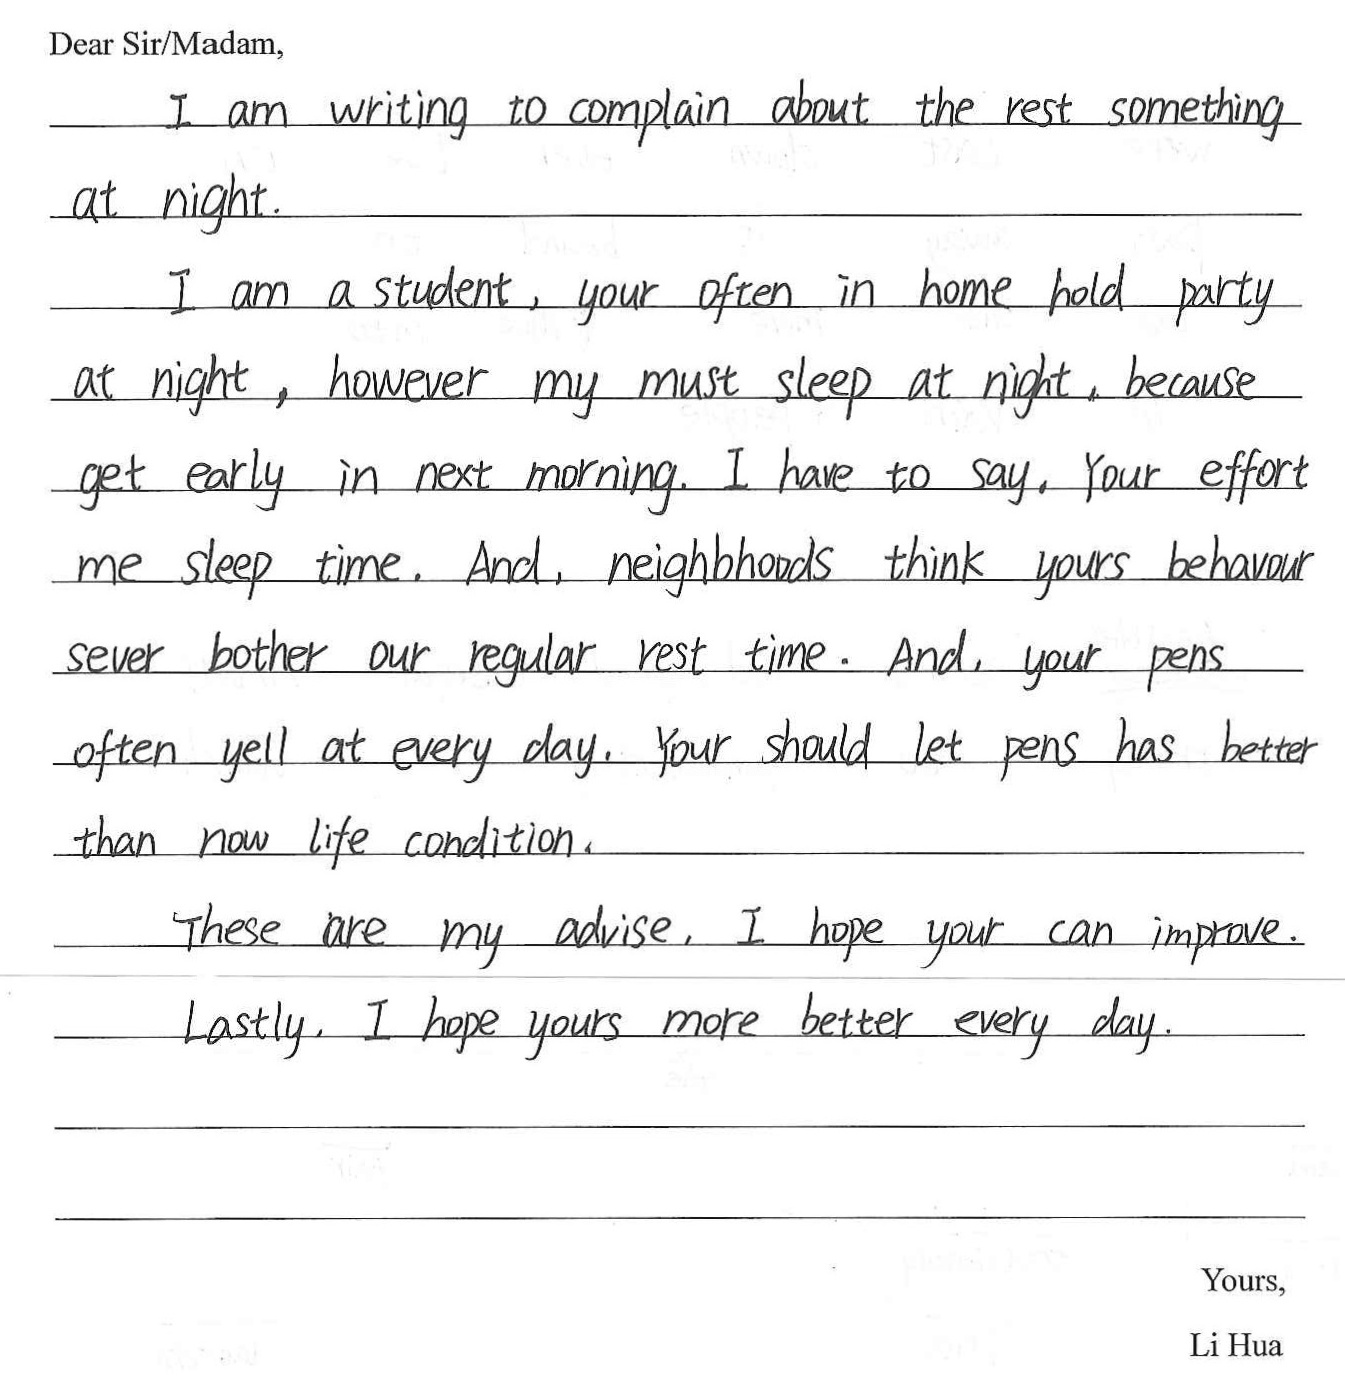 Dear Sir/Madam,
I am writing to complain about the rest something
at night.
I am a student, your often in home hold party
at night, however my must sleep at night, because
get early in next morning. I have to say, Your effort
me sleep time. And, neighbhoods think yours behavour
sever bother our regular rest time. And, your pens
often yell at every day. Your should let pens has better
than now life condition.
These are my advise, I hope your can improve.
Lastly, I hope yours more better every day.
Yours,
Li Hua